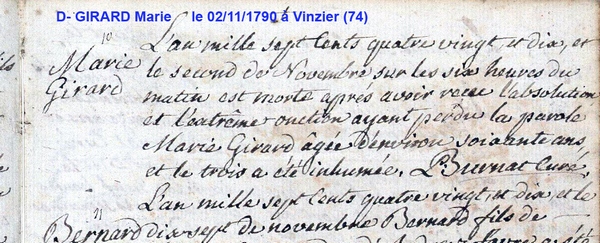 D- GIRARD Marie le 02/11/1790 à Vinzier (74)
10
Marie
Girard
L'an mille sept Cents quatre vingt, et dix, et
le second de Novembre sur les six heures du
matin est morte aprés avoir recu l'absolution
et l'extrême onction ayant perdu la parole
Marie Girard âgée d'environ soixante ans,
et le trois a été inhumée. P. Burnat Curé.
11
Bernard
L'an mille sept Cents quatre vingt, et dix, et le
dix sept de novembre Bernard fils de